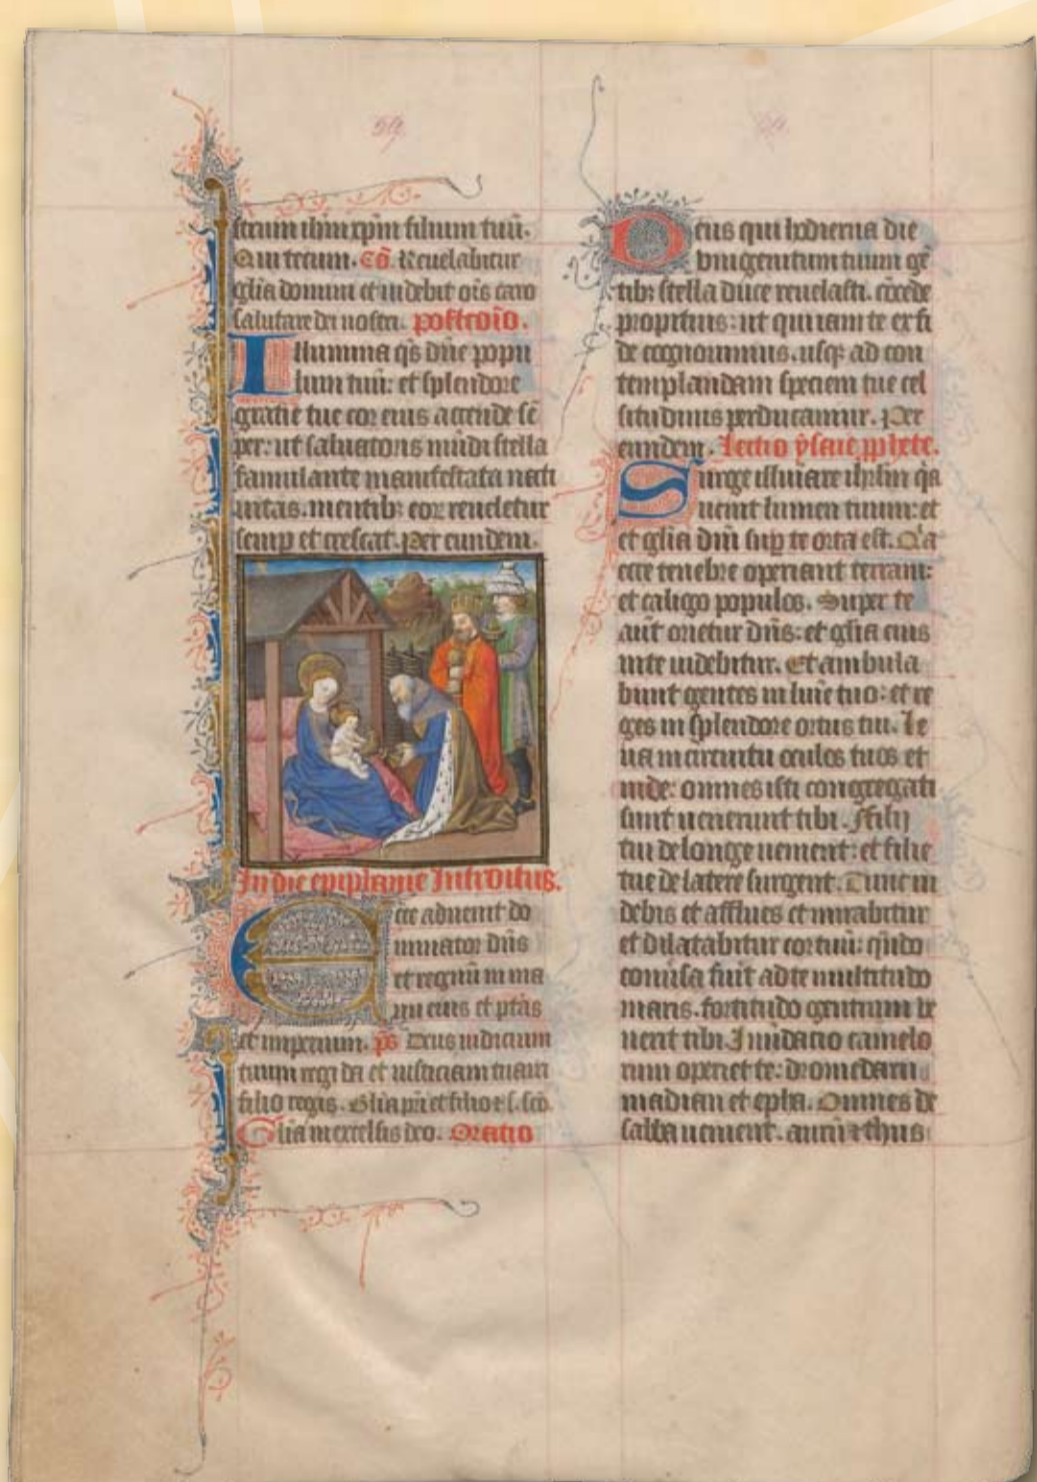 strum ihm xpm filium tuū.
Qui tecum. Cō. Reuelabitur
glia domini et uidebit oīs caro
salutare dei nostri. postcoīo.
Illumina qs dn̄e popu
lum tuū: et splendore
gratie tue cor eius accende sē
per: ut saluatoris mūdi stella
famulante manifestata nati
uitas. mentibꝫ eoꝝ reueletur
semp et crescat. Per eundem.
In die epiphanie Introitus.
Ecce aduenit do
minator dn̄s
et regnū in ma
nu eius et ptās
et imperium. ps Deus iudicium
tuum regi da et iusticiam tuam
filio regis. Glia pr̄i et filio et s. scō.
Glia in excelsis deo. Oratio
Deus qui hodierna die
vnigenitum tuum gē
tibꝫ stella duce reuelasti. cōcede
propitius: ut qui iam te ex fi
de cognouimus. usqꝫ ad con
templandam speciem tue cel
situdinis perducamur. Per
eundem. Lectio ysaie pphete.
Surge illuīare ihrlm qa
uenit lumen tuum: et
et glia dn̄i sup te orta est. Qa
ecce tenebre operient terram:
et caligo populos. Super te
aut orietur dn̄s: et glia eius
in te uidebitur. Et ambula
bunt gentes in luīe tuo: et re
ges in splendore ortus tui. Le
ua in circuitu oculos tuos et
uide: omnes isti congregati
sunt uenerunt tibi. Filij
tui de longe uenient: et filie
tue de latere surgent. Tunc ui
debis et afflues et mirabitur
et dilatabitur cor tuū: qn̄do
conūsa fuīt ad te multitudo
maris. fortitudo gentium ve
nerit tibi. Inūdatio camelo
rum operiet te: dromedarii
madian et epha. Omnes de
sabba uenient. aurū et thus